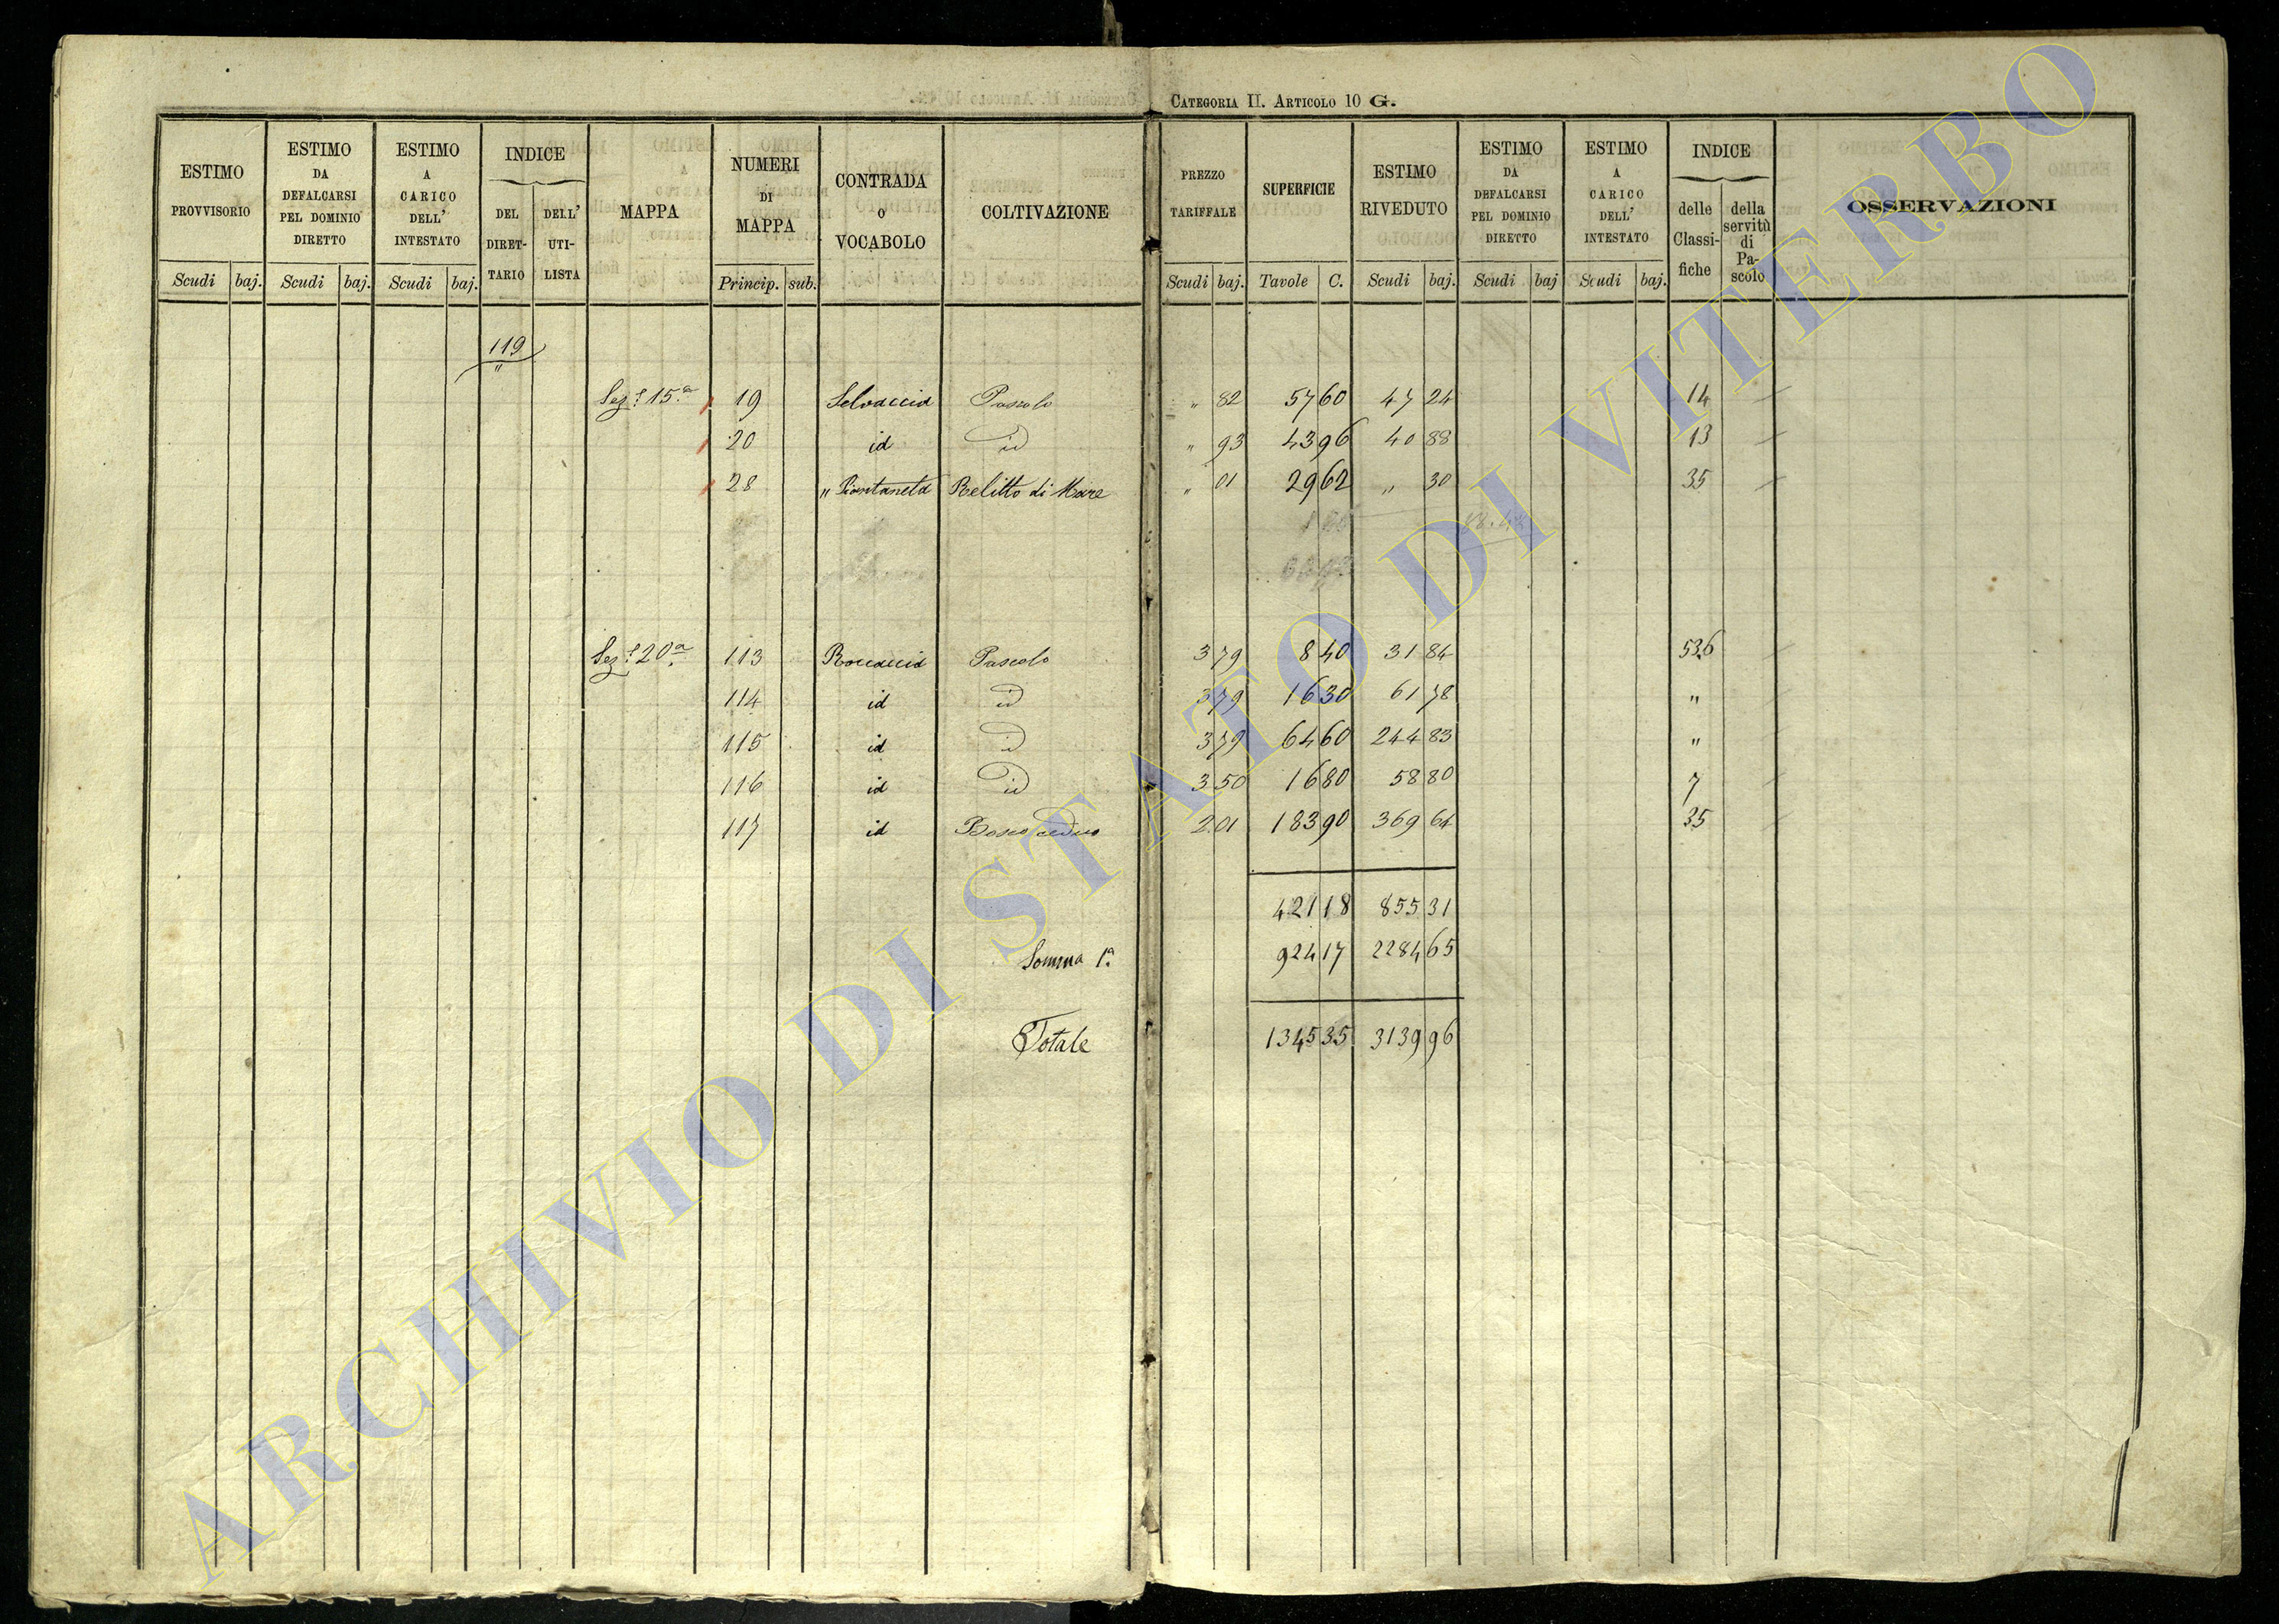 CATEGORIA II. ARTICOLO 10 G.
ESTIMO PROVVISORIO Scudi baj.
ESTIMO DA DEFALCARSI PEL DOMINIO DIRETTO Scudi baj.
ESTIMO A CARICO DELL' INTESTATO Scudi baj.
INDICE DEL DIRET-TARIO DELL' UTI-LISTA
MAPPA
NUMERI DI MAPPA Princip. sub.
CONTRADA O VOCABOLO
COLTIVAZIONE
PREZZO TARIFFALE Scudi baj.
SUPERFICIE Tavole C.
ESTIMO RIVEDUTO Scudi baj.
ESTIMO DA DEFALCARSI PEL DOMINIO DIRETTO Scudi baj
ESTIMO A CARICO DELL' INTESTATO Scudi baj.
INDICE delle Classi-fiche della servitù di Pa-scolo
OSSERVAZIONI
119
"
Sez.e 15.a 19 Selvaccia Pascolo " 82 57 60 47 24 14
20 id id " 93 43 96 40 88 13
28 " Piantaneta Relitto di Mare " 01 29 62 " 30 35
Sez.e 20.a 113 Roccaccia Pascolo 3 79 8 40 31 84 536
114 id id 3 79 16 30 61 78 "
115 id id 3 79 64 60 244 83 "
116 id id 3 50 16 80 58 80 7
117 id Bosco ceduo 2 01 183 90 369 64 35
421 18 855 31
Somma 1.a 924 17 2284 65
Totale 1345 35 3139 96
ARCHIVIO DI STATO DI VITERBO